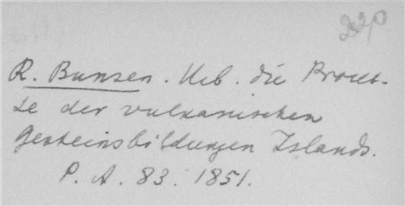 220
R. Bunsen. Ueb. die Proces-
se der vulkanischen
Gesteinsbildungen Islands.
P. A. 83. 1851.